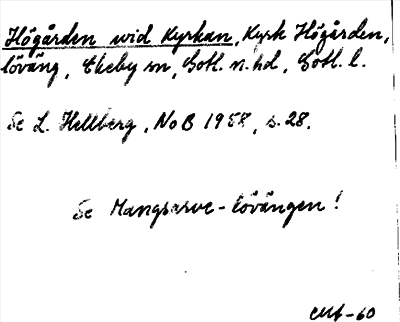 Högården wid Kyrkan, Kyrk Högården,
löväng, Ekeby sn, Gotl. n. hd, Gotl. l.
Se L. Hellberg, NoB 1958, s. 28.
Se Mangsarve-lövängen!